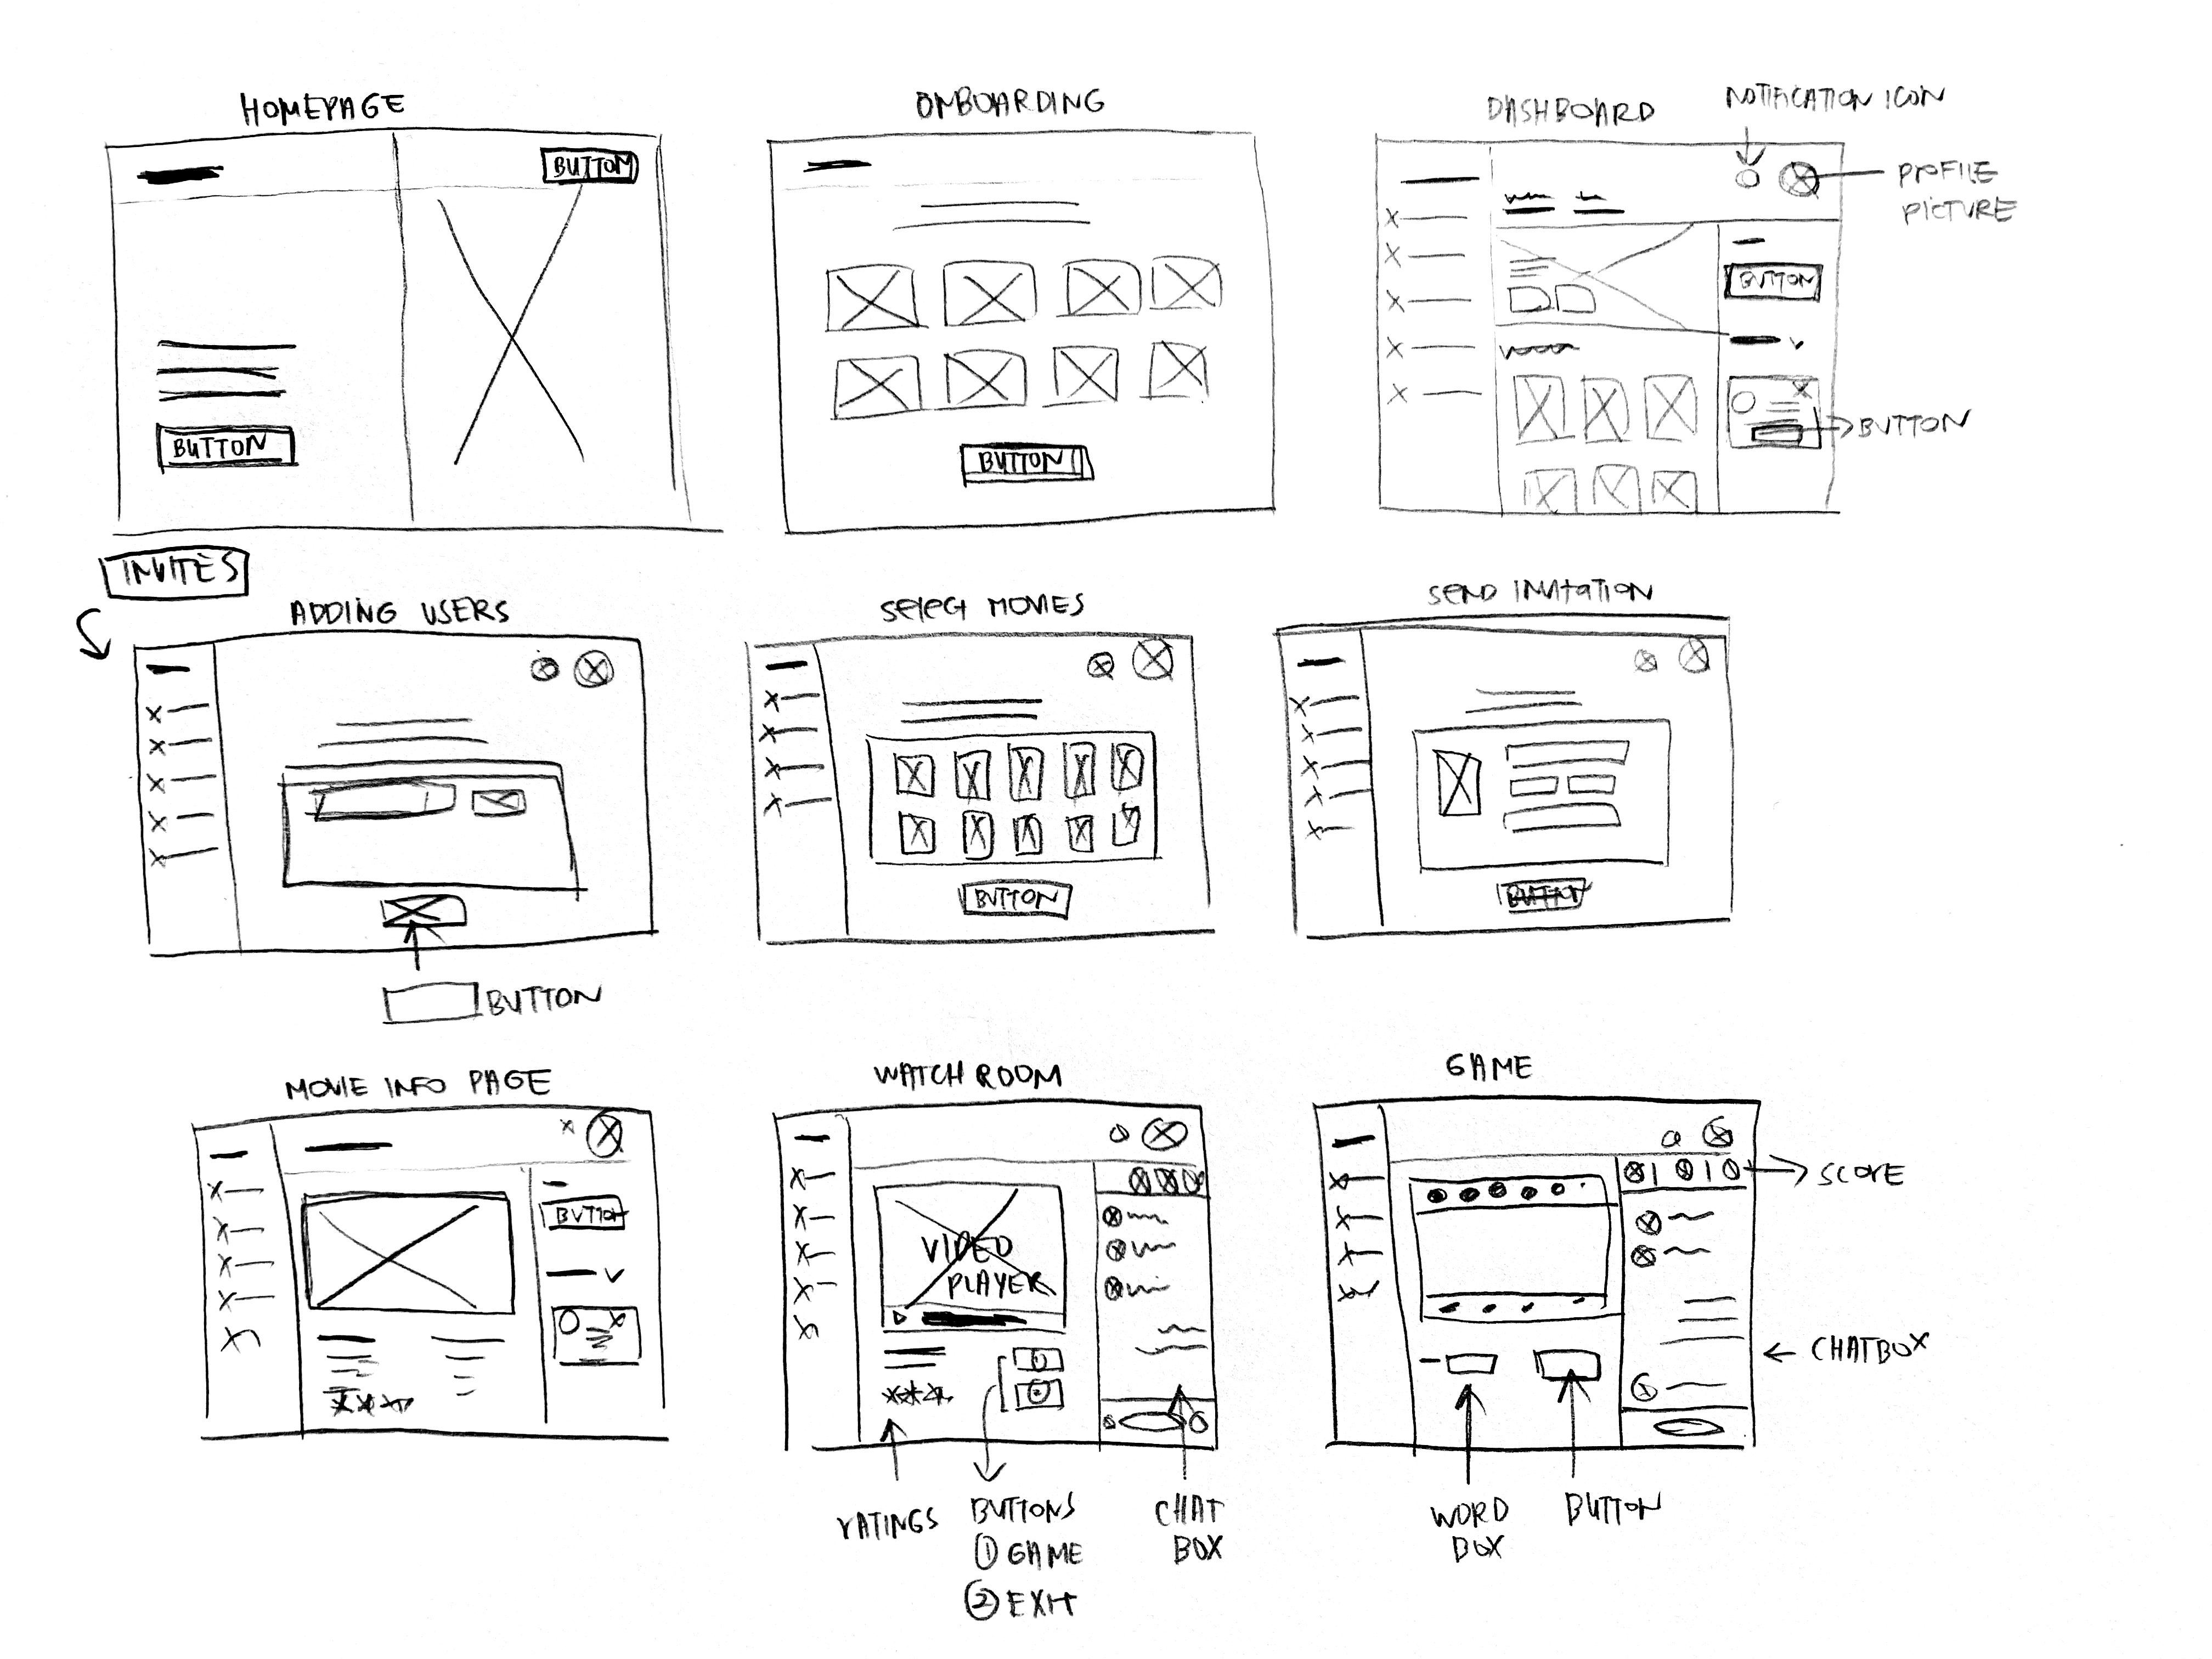 HOMEPAGE
BUTTON
BUTTON
ONBOARDING
BUTTON
DASHBOARD
NOTIFICATION ICON
PROFILE
PICTURE
BUTTON
BUTTON
INVITES
ADDING USERS
BUTTON
SELECT MOVIES
BUTTON
SEND INVITATION
BUTTON
MOVIE INFO PAGE
BUTTON
WATCH ROOM
VIDEO
PLAYER
RATINGS
BUTTONS
① GAME
② EXIT
CHAT
BOX
GAME
SCORE
CHATBOX
WORD
BOX
BUTTON